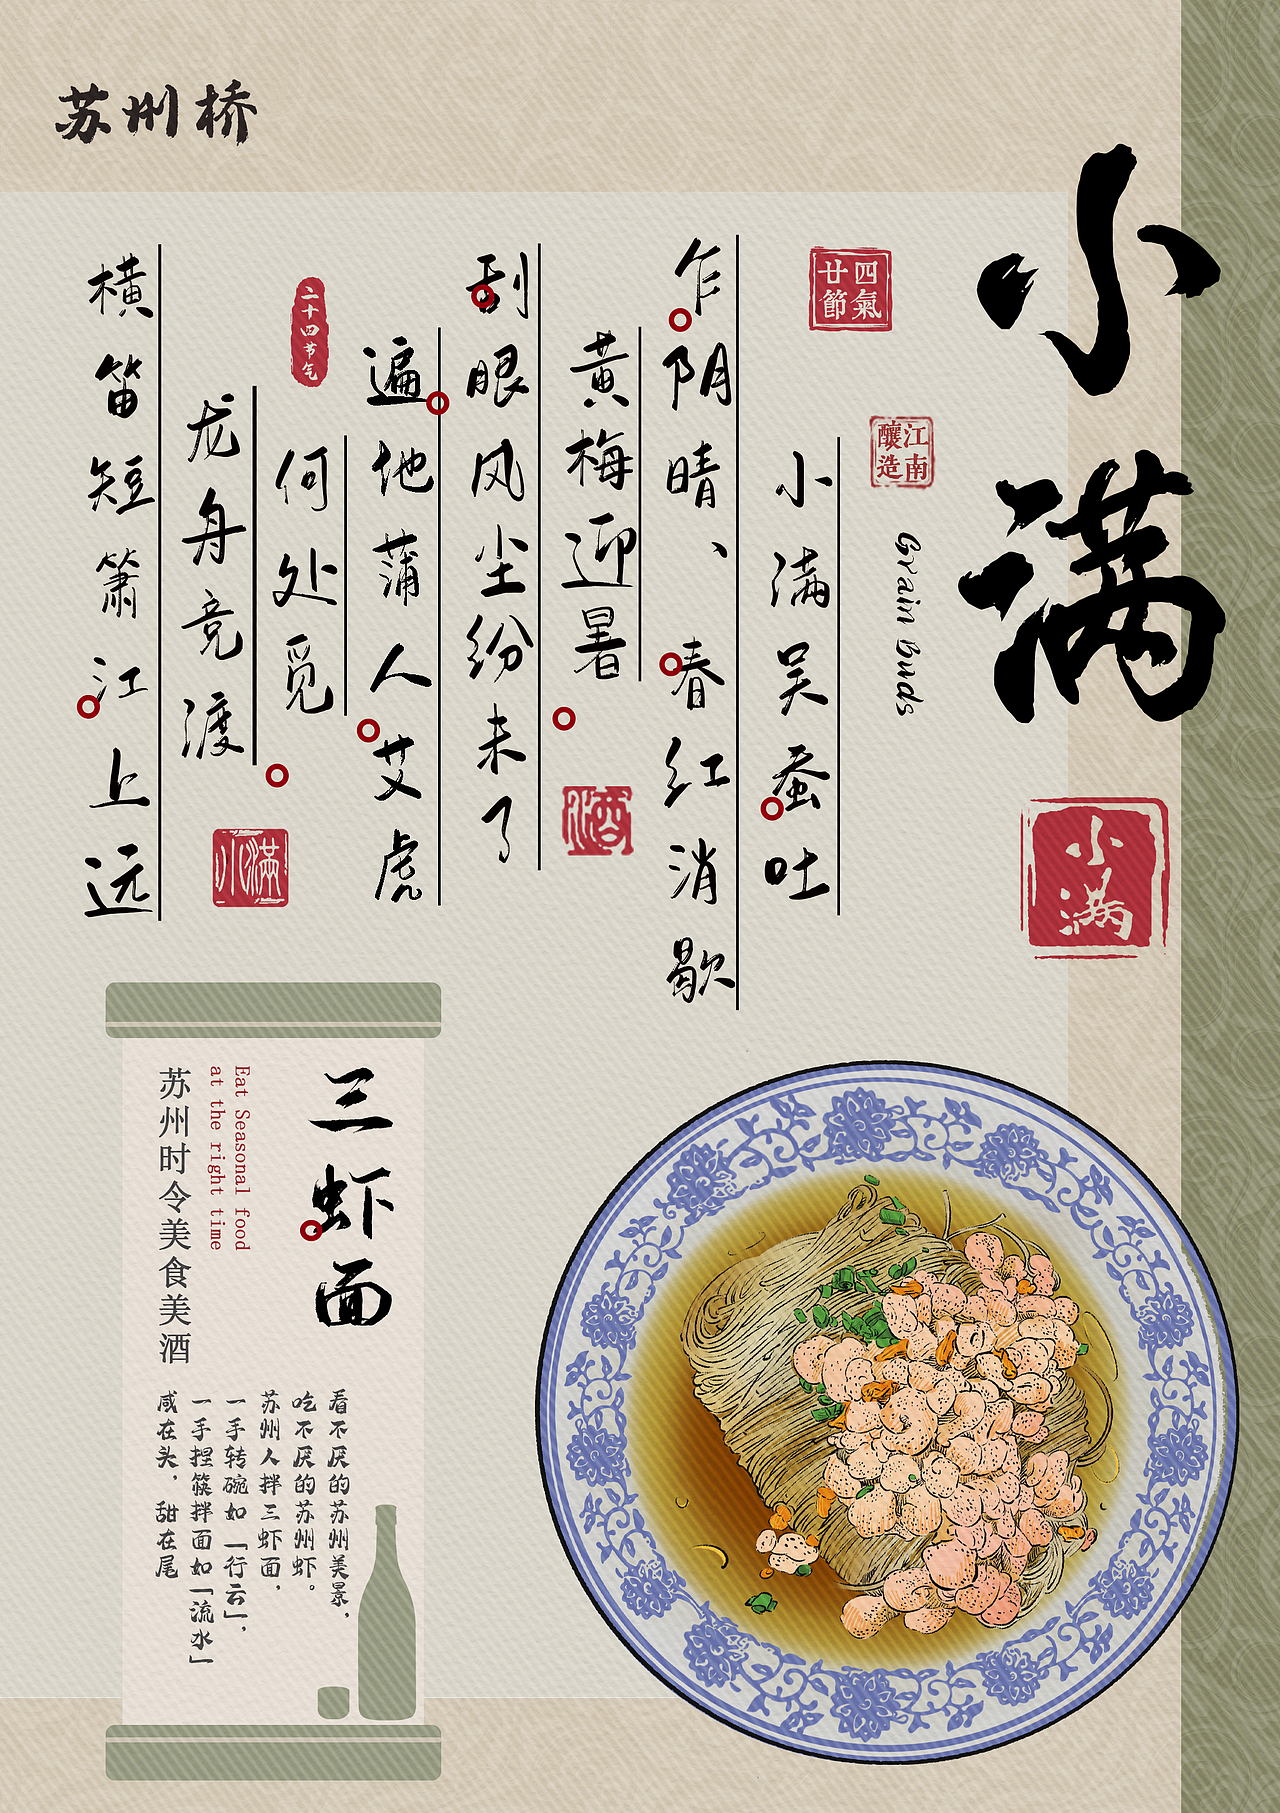 苏州桥
小满
四氣
廿節
江南
釀造
Grain Buds
小满
小满吴蚕吐
乍阴晴、春红消歇
黄梅迎暑
刮眼风尘纷未了
遍地蒲人艾虎
何处觅
龙舟竞渡
横笛短箫江上远
二十四节气
酒
小滿
三虾面
Eat Seasonal food
at the right time
苏州时令美食美酒
看不厌的苏州美景，
吃不厌的苏州虾。
苏州人拌三虾面，
一手转碗如「行云」，
一手捏筷拌面如「流水」
咸在头，甜在尾